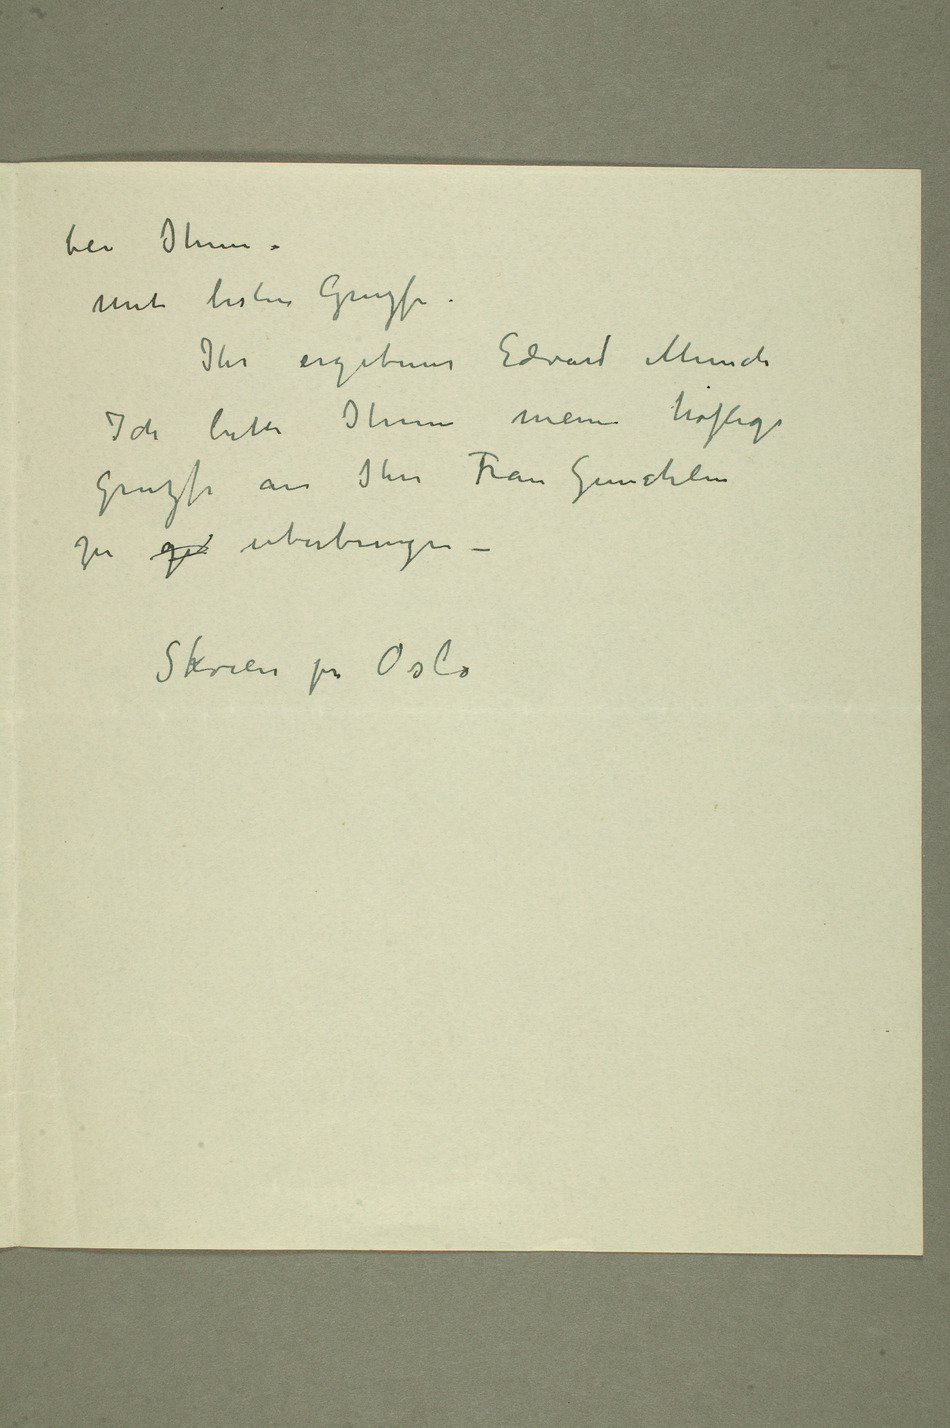 bei Ihnen.
Mit besten Gruzse.
Ihr ergebener Edvard Munch
Ich bitte Ihnen meine höflige
Gruzse an Ihre Frau Gemahlin
zu überbringen –
Skøien pr Oslo